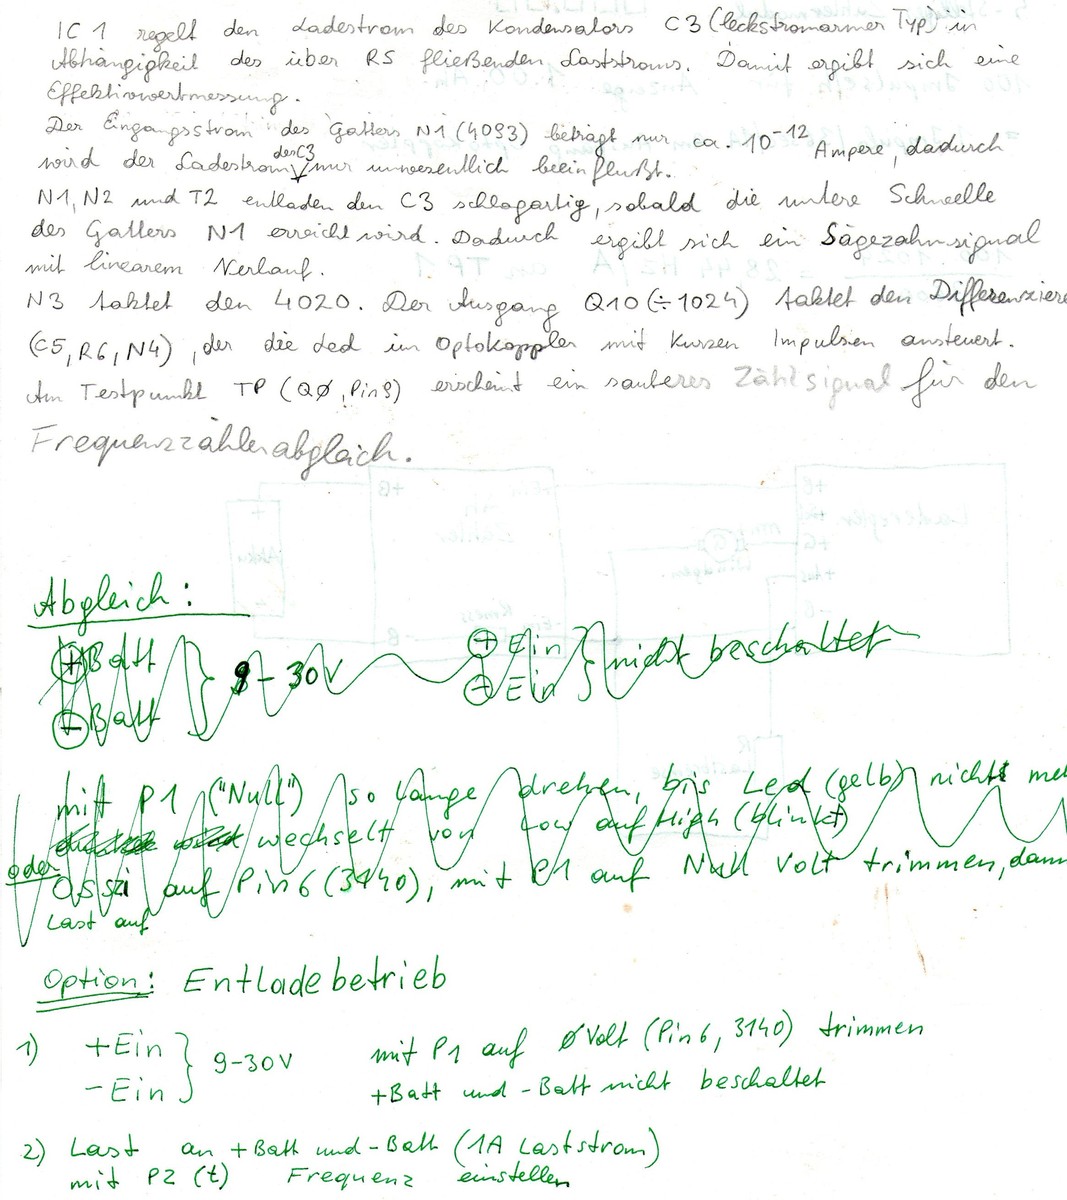 IC 1 regelt den Ladestrom des Kondensators C3 (leckstromarmer Typ) in
Abhängigkeit des über R5 fließenden Laststroms. Damit ergibt sich eine
Effektivwertmessung.
Der Eingangsstrom des Gatters N1 (4093) beträgt nur ca. 10⁻¹² Ampere, dadurch
wird der Ladestrom des C3 nur unwesentlich beeinflußt.
N1, N2 und T2 entladen den C3 schlagartig, sobald die untere Schwelle
des Gatters N1 erreicht wird. Dadurch ergibt sich ein Sägezahnsignal
mit linearem Verlauf.
N3 taktet den 4020. Der Ausgang Q10 (÷1024) taktet den Differenziere
(C5, R6, N4), der die Led im Optokoppler mit kurzen Impulsen ansteuert.
Am Testpunkt TP (QØ, Pin 9) erscheint ein sauberes Zählsignal für den
Frequenzzählerabgleich.
Abgleich:
+ Batt } 9-30V + Ein } nicht beschaltet
- Batt - Ein
mit P1 ("Null") so lange drehen, bis Led (gelb) nicht me
wechselt von Low auf High (blinkt)
oder Oszi auf Pin 6 (3140), mit P1 auf Null Volt trimmen, dann
Last auf
Option: Entladebetrieb
1) +Ein } 9-30V mit P1 auf ØVolt (Pin 6, 3140) trimmen
-Ein +Batt und -Batt nicht beschaltet
2) Last an +Batt und -Batt (1A Laststrom)
mit P2 (t) Frequenz einstellen